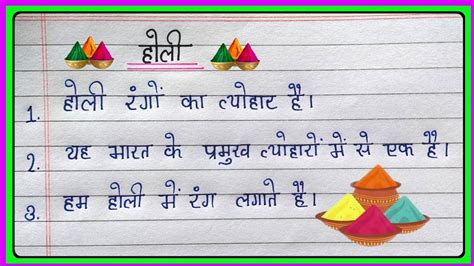 होली
1. होली रंगों का त्योहार है।
2. यह भारत के प्रमुख त्योहारों में से एक है।
3. हम होली में रंग लगाते है।